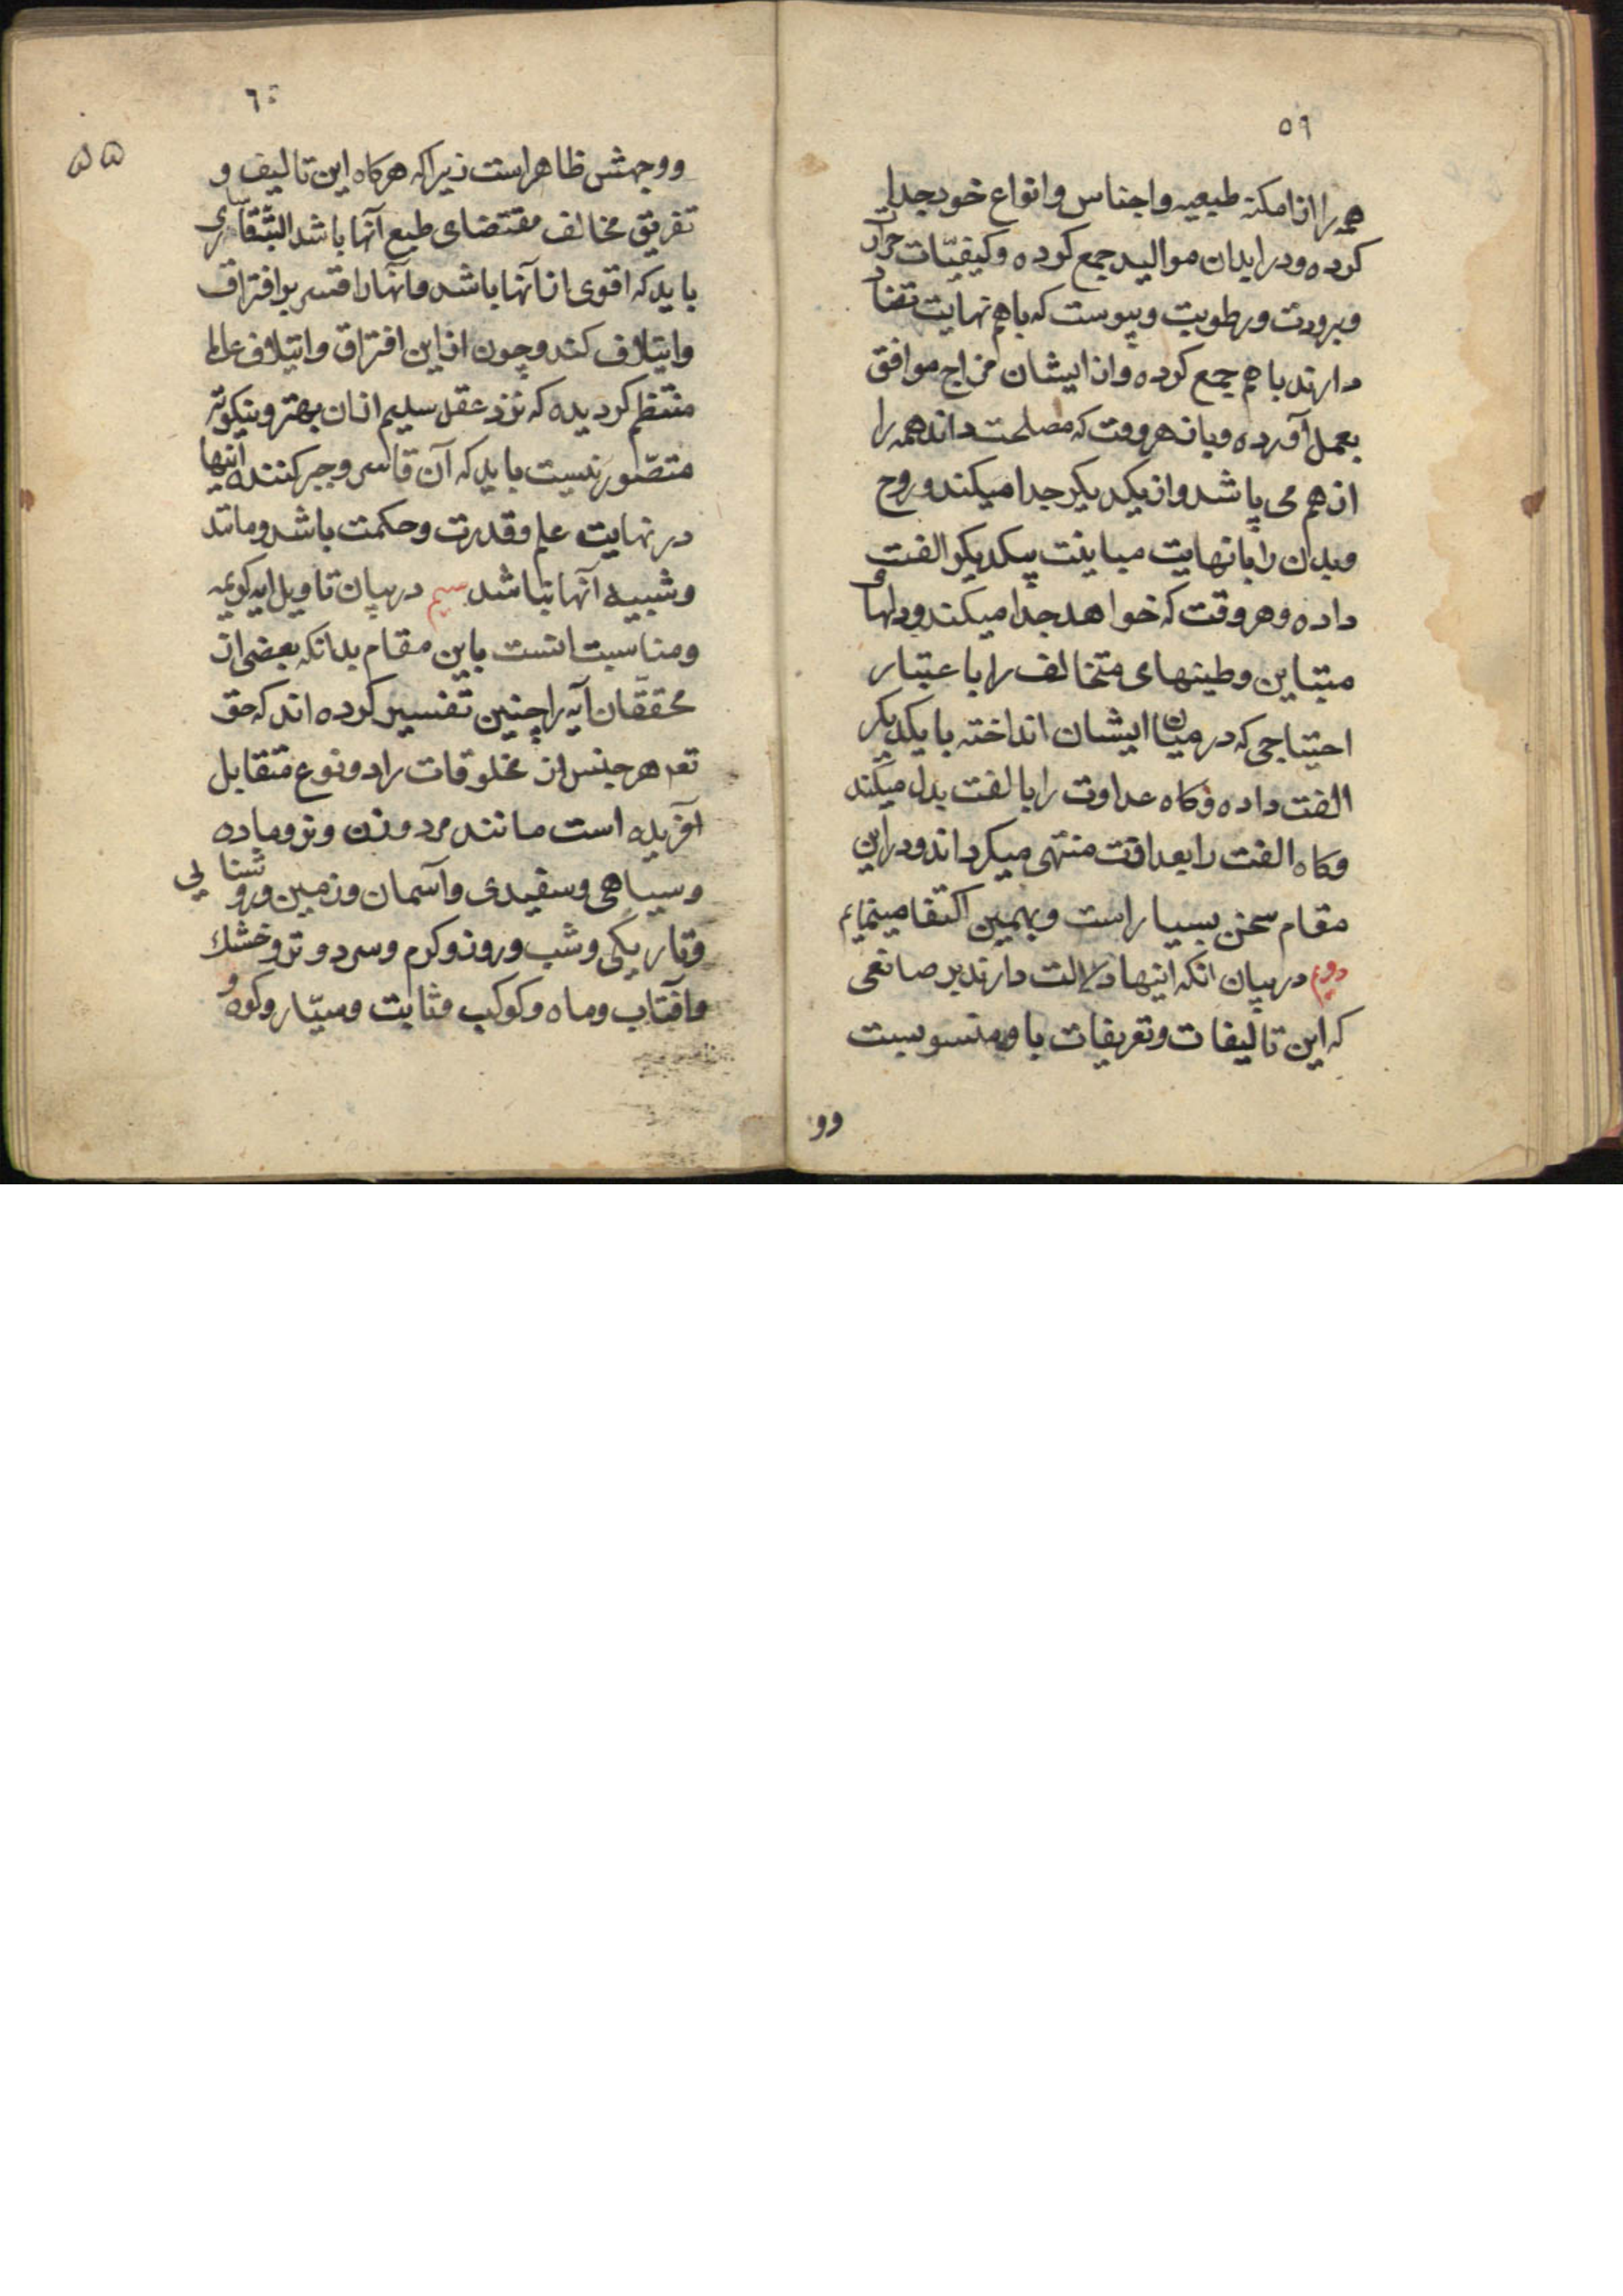 ٥٩
همه را از امکنهٔ طبیعیه و اجناس و انواع خود جدا
کرده و در ابدان موالید جمع کرده و کیفیّات حرارت
و برودت و رطوبت و یبوست که با هم نهایت تضاد
دارند با هم جمع کرده و از ایشان مزاج موافق
بعمل آورده و باز هر وقت که مصلحت داند همه را
از هم می پاشد و از یکدیکر جدا میکند و روح
و بدن را با نهایت مباینت بیکدیکر الفت
داده و هر وقت که خواهد جدا میکند و دلهای
متباین و طینهای متخالف را باعتبار
احتیاجی که در میان ایشان انداخته با یکدیکر
الفت داده و کاه عداوت را بالفت بدل میکند
و کاه الفت را بعداوت منتهی میکرداند و در این
مقام سخن بسیار است و بهمین اکتفا مینمایم
دویم در بیان انکه اینها دلالت دارند بر صانعی
که این تالیفات و تفریقات باو منسوبست
وو
٦٠
۵۵
و وجهش ظاهر است زیرا که هرکاه این تالیف و
تفریق مخالف مقتضای طبع آنها باشد البته قاسری
باید که اقوی از آنها باشد و آنها را قسر بر افتراق
و ایتلاف کند و چون از این افتراق و ایتلاف عالم
منتظم کردیده که نزد عقل سلیم از ان بهتر و نیکوتر
متصّور نیست باید که آن قاسر و جبر کننده اینها
در نهایت علم و قدرت و حکمت باشد و مانند
و شبیه آنها نباشد سیم در بیان تاویل ایه کریمه
و مناسبت انست باین مقام بدانکه بعضی از
محققّان آیه را چنین تفسیر کرده اند که حق
تعه هر جنس از مخلوقات را دو نوع متقابل
آفریده است مانند مرد و زن و نر و ماده
و سیاهی و سفیدی و آسمان و زمین و روشنایی
و تاریکی و شب و روز و کرم و سرد و تر و خشك
و آفتاب و ماه و کوکب و ثابت و سیّار و کوه و